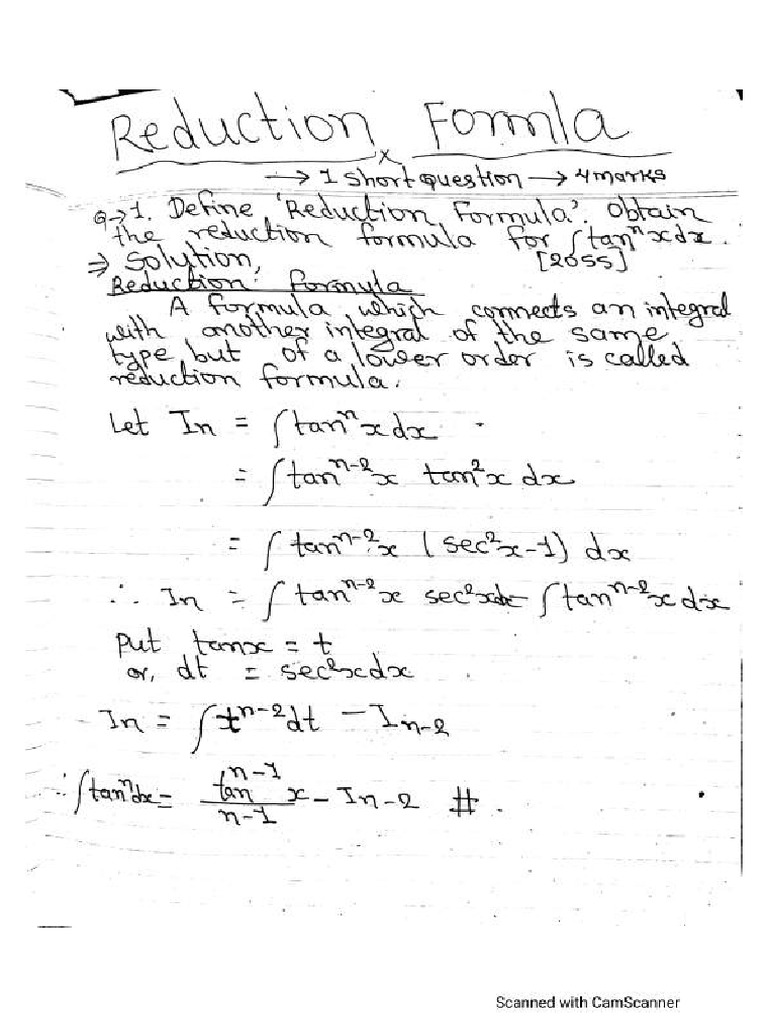 Reduction Formla
x
→ 1 short question → 4 marks
Q→1. Define 'Reduction Formula'. Obtain
the reduction formula for ∫tanⁿxdx.
⇒ Solution, [2055]
Reduction formula
A formula which connects an integral
with another integral of the same
type but of a lower order is called
reduction formula.
Let In = ∫tanⁿxdx
= ∫tanⁿ⁻²x tan²x dx
= ∫tanⁿ⁻²x (sec²x-1) dx
∴ In = ∫tanⁿ⁻²x sec²xdx - ∫tanⁿ⁻²xdx
Put tanx = t
or, dt = sec²xdx
In = ∫tⁿ⁻²dt - In-2
∴ ∫tanⁿdx = tanⁿ⁻¹x / n-1 - In-2 #.
Scanned with CamScanner